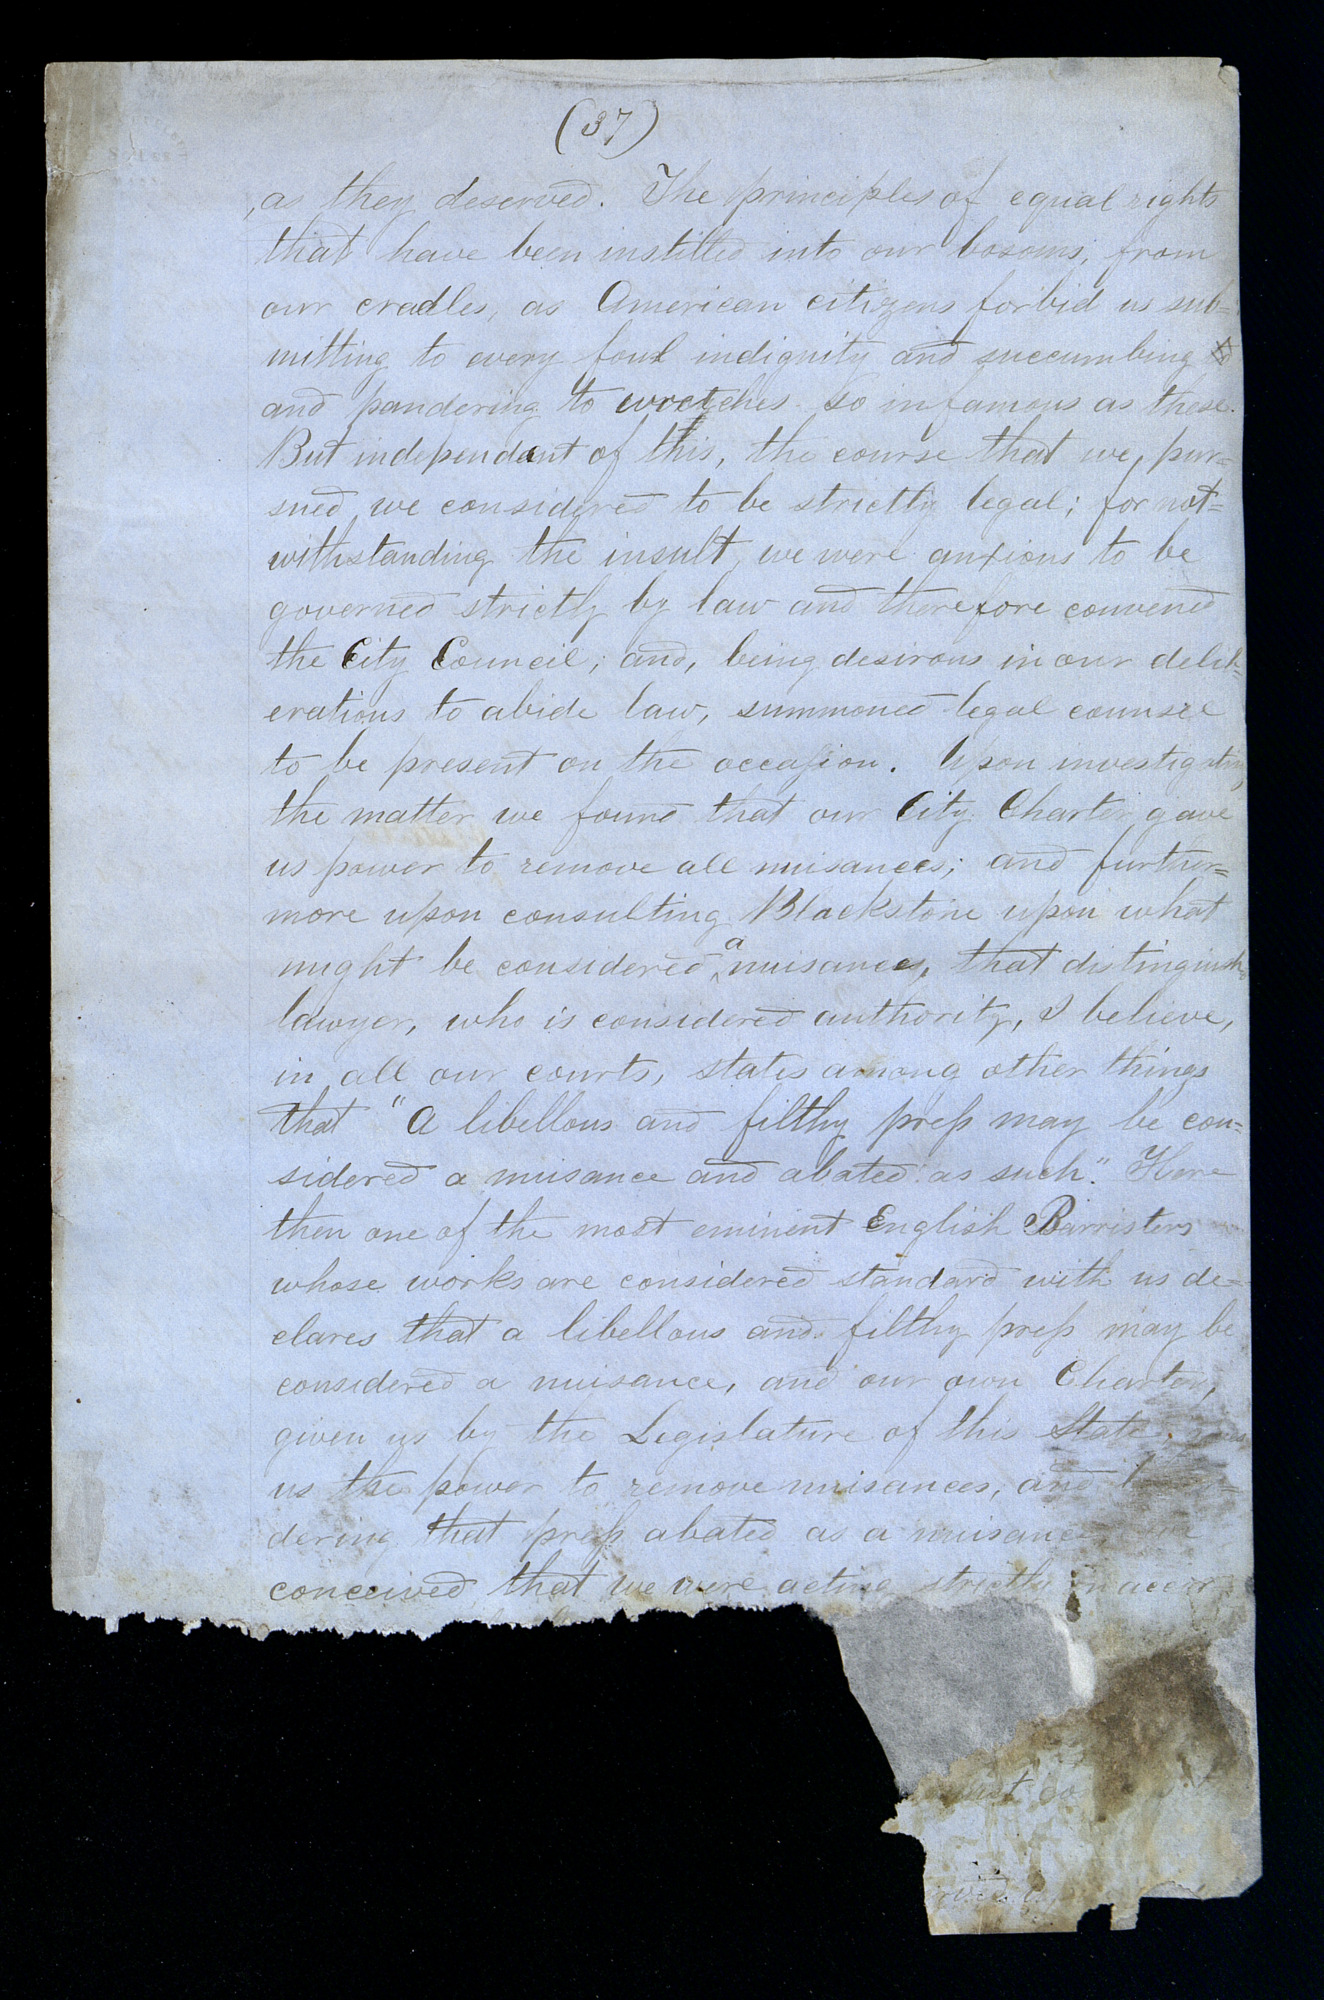 (37)
as they deserved. The principles of equal rights
that have been instilled into our bosoms, from
our cradles, as American citizens forbid us sub=
mitting to every foul indignity and succumbing
and pandering to wretches so infamous as these.
But independant of this, the course that we pur=
sued we considered to be strictly legal; for not=
withstanding the insult, we were anxious to be
governed strictly by law and therefore convened
the City Council; and, being desirous in our delib=
erations to abide law, summoned legal counsel
to be present on the occasion. Upon investigating
the matter we found that our City Charter gave
us power to remove all nuisances; and further=
more upon consulting Blackstone upon what
might be considered a nuisance, that distinguish
lawyer, who is considered authority, I believe,
in all our courts, states among other things
that "A libellous and filthy press may be con=
sidered a nuisance and abated as such." Here
then one of the most eminent English Barristers
whose works are considered standard with us de=
clares that a libellous and filthy press may be
considered a nuisance, and our own Charter,
given us by the Legislature of this State,
us the power to remove nuisances, and
dering that press abated as a nuisance
conceived that we were acting strictly in accor